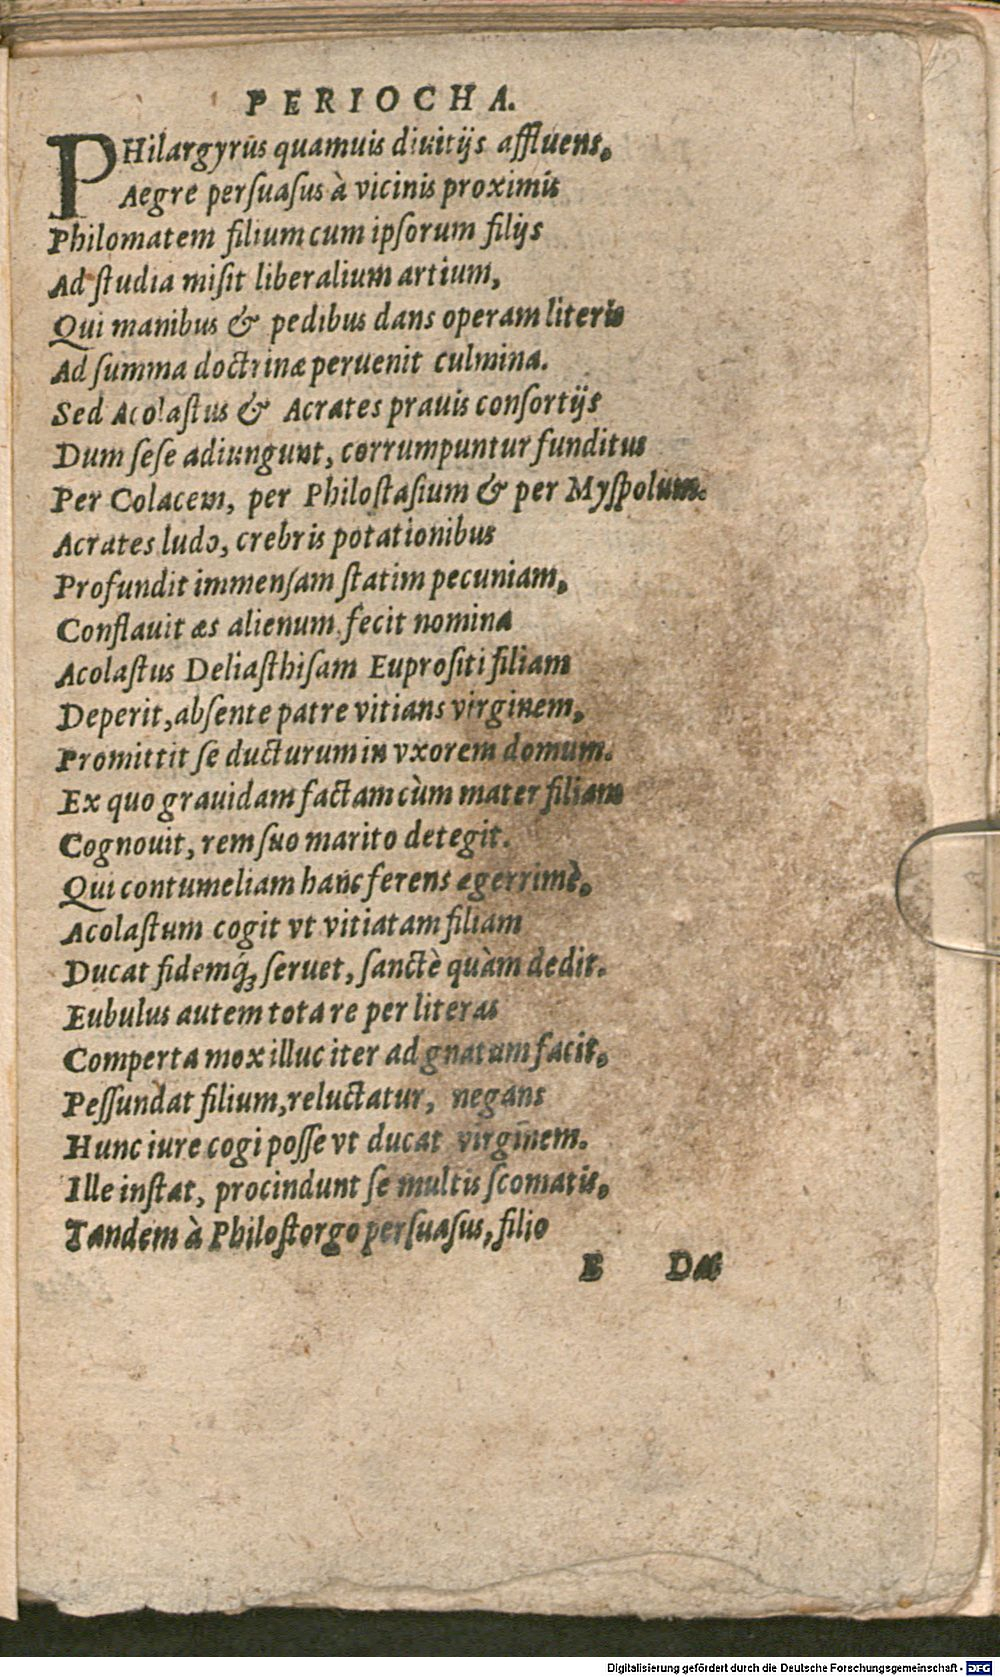 PERIOCHA.
PHilargyrus quamuis diuitijs affluens.
Aegre persuasus à vicinis proximis
Philomatem filium cum ipsorum filijs
Ad studia misit liberalium artium,
Qui manibus & pedibus dans operam literis
Ad summa doctrinæ peruenit culmina.
Sed Acolastus & Acrates prauis consortijs
Dum sese adiungunt, corrumpuntur funditus
Per Colacem, per Philostasium & per Myspolum.
Acrates ludo, crebris potationibus
Profundit immensam statim pecuniam,
Conflauit æs alienum fecit nomina
Acolastus Deliasthisam Euprositi filiam
Deperit, absente patre vitians virginem,
Promittit se ducturum in vxorem domum.
Ex quo grauidam factam cùm mater filiam
Cognouit, rem suo marito detegit.
Qui contumeliam hanc ferens egerrimè,
Acolastum cogit vt vitiatam filiam
Ducat fidemq́; seruet, sanctè quàm dedit.
Eubulus autem tota re per literas
Comperta mox illuc iter ad gnatum facit.
Pessundat filium, reluctatur, negans
Hunc iure cogi posse vt ducat virginem.
Ille instat, procindunt se multis scomatis,
Tandem à Philostorgo persuasus, filio
E Dat
Digitalisierung gefördert durch die Deutsche Forschungsgemeinschaft - DFG